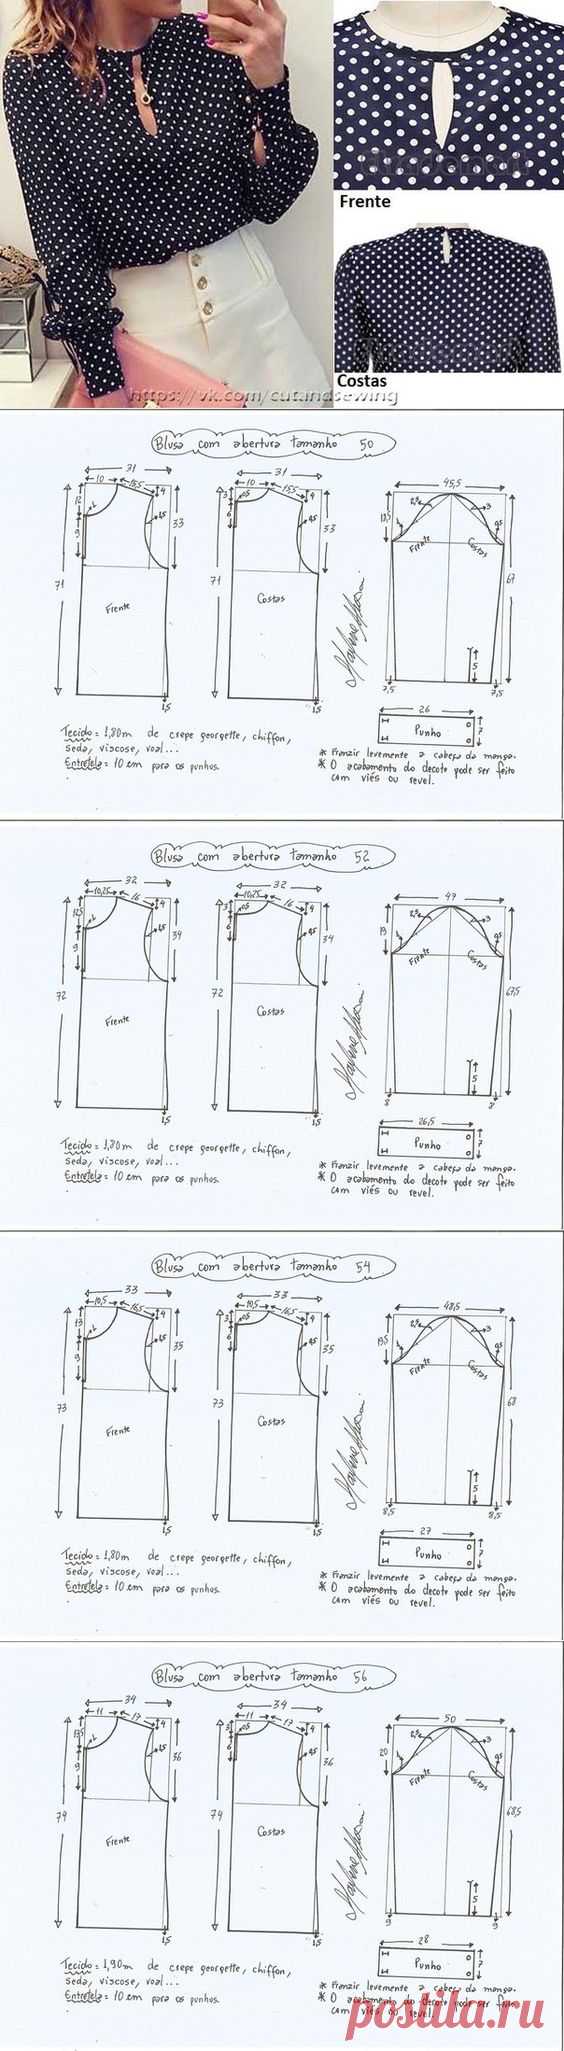 Frente
Costas
https://vk.com/cutandsewing
Blusa com abertura tamanho 50
31
10
15,5
4
12
2
9
1,5
33
71
Frente
1,5
31
10
15,5
4
3
0,5
6
0,5
33
71
Costas
1,5
45,5
18,5
2,5
3
1
0,5
Frente
Costas
67
5
7,5
7,5
26
Punho
7
Tecido = 1,80m de crepe georgette, chiffon,
seda, viscose, voal...
Entretela = 10 cm para os punhos.
* Franzir levemente a cabeça da manga.
* O acabamento do decote pode ser feito
com viés ou revel.
Blusa com abertura tamanho 52
32
10,25
16
4
12,5
2
9
1,5
34
72
Frente
1,5
32
10,25
16
4
3
0,5
6
0,5
34
72
Costas
1,5
47
19
2,5
3
1
0,5
Frente
Costas
67,5
5
8
8
26,5
Punho
7
Tecido = 1,80m de crepe georgette, chiffon,
seda, viscose, voal...
Entretela = 10 cm para os punhos.
* Franzir levemente a cabeça da manga.
* O acabamento do decote pode ser feito
com viés ou revel.
Blusa com abertura tamanho 54
33
10,5
16,5
4
13
2
9
1,5
35
73
Frente
1,5
33
10,5
16,5
4
3
0,5
6
0,5
35
73
Costas
1,5
48,5
19,5
2,5
3
1
0,5
Frente
Costas
68
5
8,5
8,5
27
Punho
7
Tecido = 1,80m de crepe georgette, chiffon,
seda, viscose, voal...
Entretela = 10 cm para os punhos.
* Franzir levemente a cabeça da manga.
* O acabamento do decote pode ser feito
com viés ou revel.
Blusa com abertura tamanho 56
34
11
17
4
13,5
2
9
1,5
36
74
Frente
1,5
34
11
17
4
3
0,5
6
0,5
36
74
Costas
1,5
50
20
2,5
3
1
0,5
Frente
Costas
68,5
5
9
9
28
Punho
7
Tecido = 1,90m de crepe georgette, chiffon,
seda, viscose, voal...
Entretela = 10 cm para os punhos.
* Franzir levemente a cabeça da manga.
* O acabamento do decote pode ser feito
com viés ou revel.
postila.ru